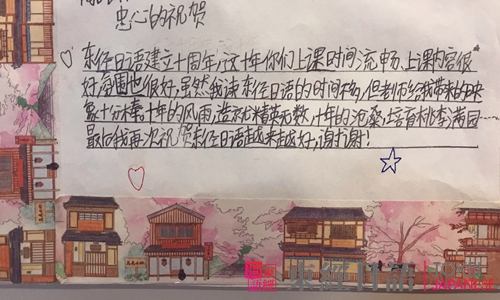 忠心的祝贺
东经日语建立十周年,这十年你们上课时间流畅、上课内容很
好,氛围也很好,虽然我读东经日语的时间不长,但老师给我带来的映
象十分棒,十年的风雨,造就精英无数,十年的沧桑,培育桃李满园……
最后我再次祝贺东经日语越来越好,谢谢!